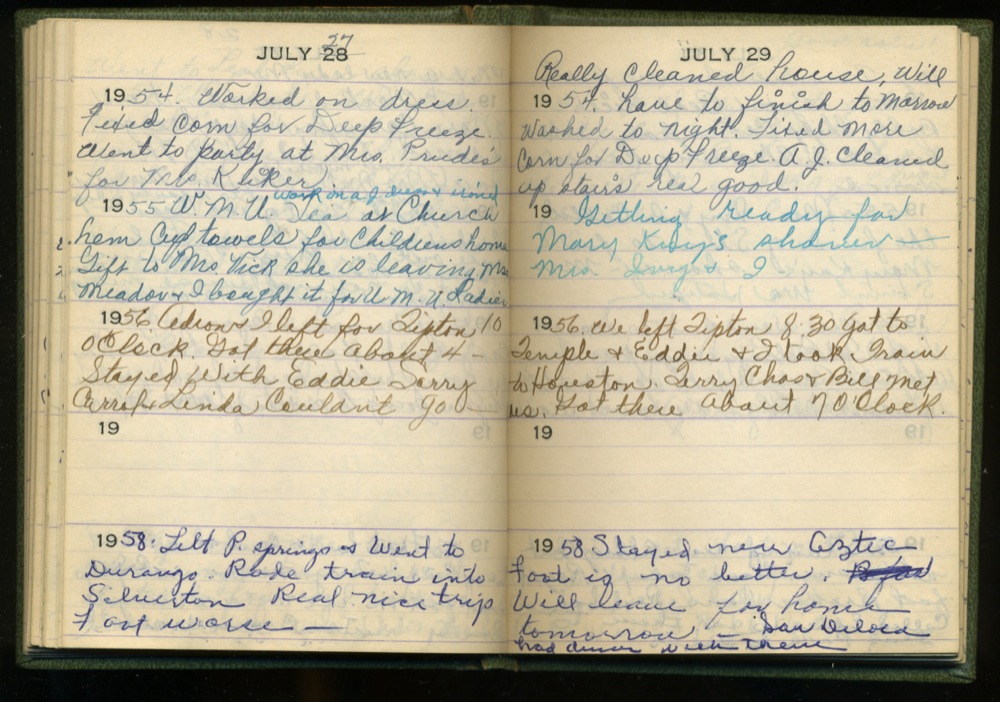 27
JULY 28
1954. Worked on dress.
Fixed Corn for Deep freeze.
Went to party at Mrs. Prude's
for Mrs. Kuker
work on a J dress & ironed
1955 W. M. U. Tea at Church
hem Cup towels for Childrens home
Gift to Mrs Vick she is leaving, Mrs
Meador & I bought it for W. M. U. Ladies
1956 & I left for Tipton 10
O'Clock. Got there About 4 -
Stayed With Eddie Sorry
Carrol & Linda Couldnt go -
19
1958. Left P. springs & Went to
Durango. Rode train into
Silverton Real nice trip
Foot worse -
JULY 29
Really cleaned house, Will
1954. have to finish to Morrow
Washed to night. Fixed More
Corn for Deep Freeze. A. J. cleaned
up stairs real good.
19 Getting ready for
Mary shower -
Mrs Ivory & I
1956. We left Tipton 8:30 Got to
Temple & Eddie & I took Train
to Houston. Larry Chas & Bill met
us. Got there About 7 O'Clock.
19
1958 Stayed near Aztec
Foot is no better.
Will leave for home
tomorrow - Saw
had dinner with them